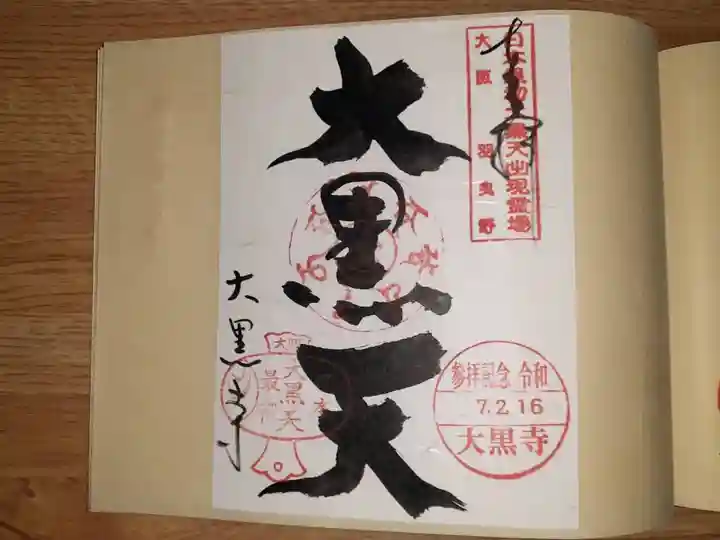 日本最初大黒天出現霊場
大阪 羽曳野
大黒天
大黒天
最初
大黒寺
参拝記念 令和
7.2.16
大黒寺